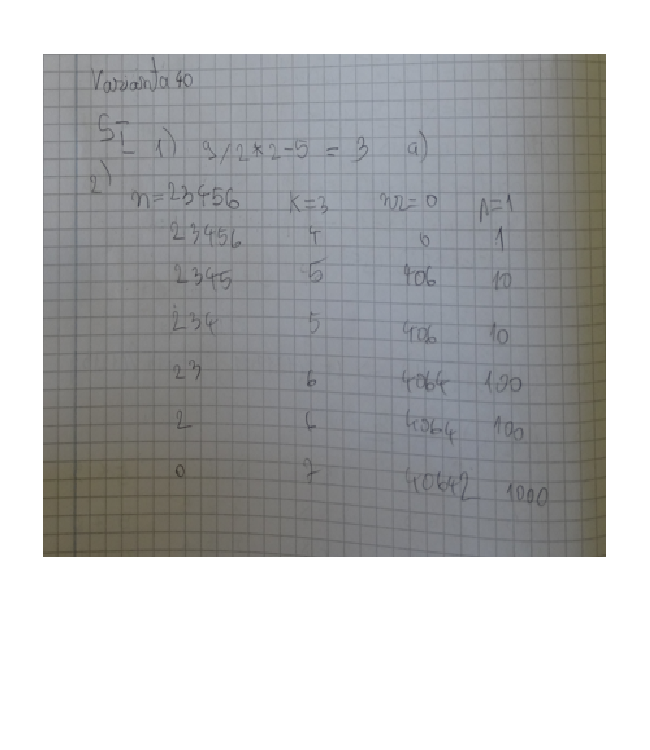 Varianta 40
SI
1) 9/2*2-5 = 3 a)
2) n=23456 K=3 nr=0 p=1
23456 4 6 1
2345 5 406 10
234 5 406 10
23 6 4064 100
2 6 4064 100
0 7 40642 1000